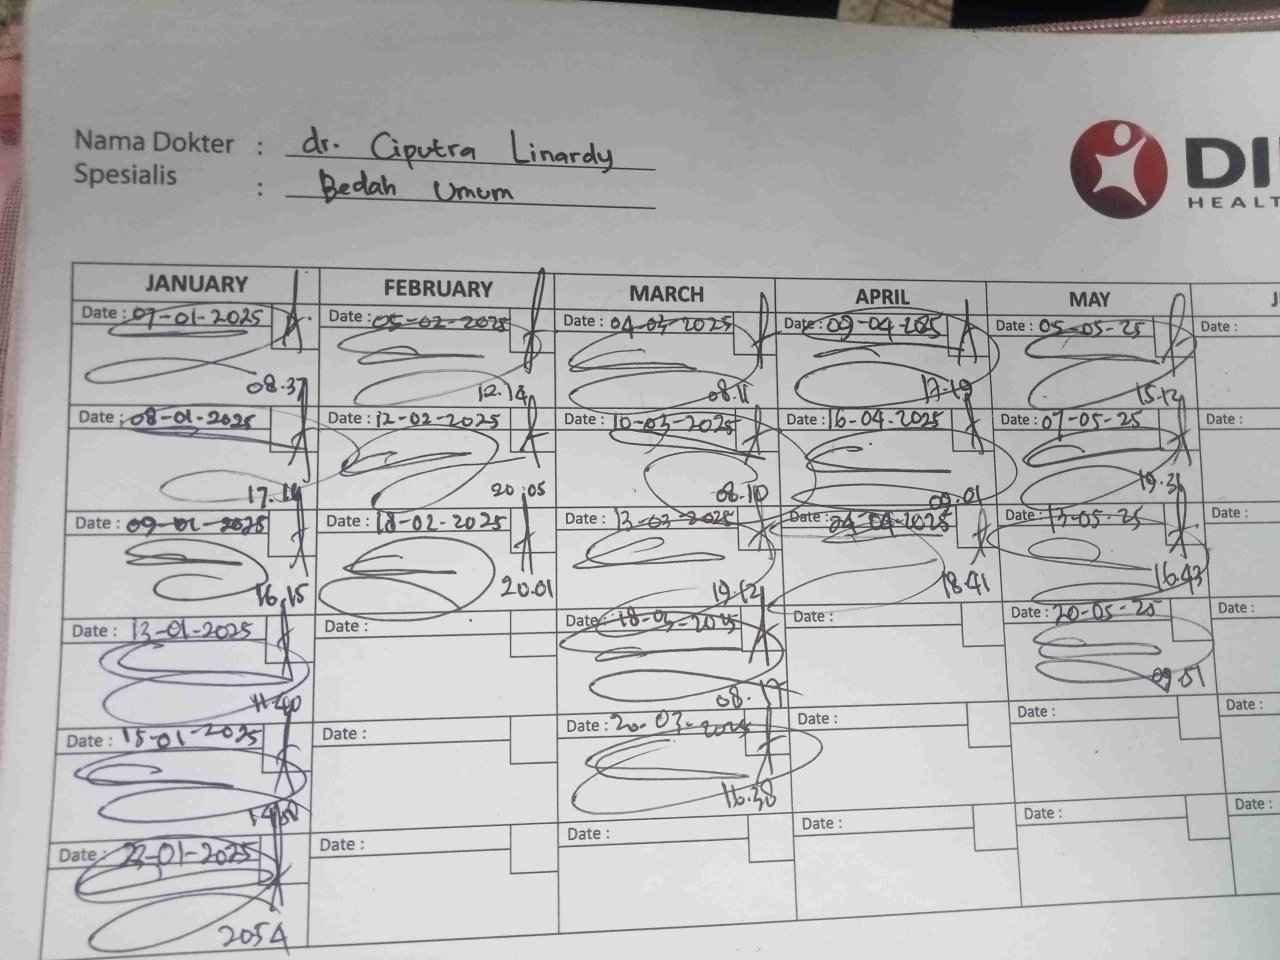 Nama Dokter : dr. Ciputra Linardy
Spesialis : Bedah Umum
DI
HEALT
JANUARY FEBRUARY MARCH APRIL MAY J
Date : 07-01-2025 Date : 05-02-2025 Date : 04-03-2025 Date : 09-04-2025 Date : 05-05-25 Date :
08.37 12.18 08.11 17.19 15.12
Date : 08-01-2025 Date : 12-02-2025 Date : 10-03-2025 Date : 16-04-2025 Date : 07-05-25 Date :
17.19 20.05 08.10 09.01 19.31
Date : 09-01-2025 Date : 18-02-2025 Date : 13-03-2025 Date : 24-04-2025 Date : 13-05-25 Date :
16.15 20.01 19.12 18.41 16.43
Date : 13-01-2025 Date : Date : 18-03-2025 Date : Date : 20-05-25 Date :
11.40 08.17 09.51
Date : 15-01-2025 Date : Date : 20-03-2025 Date : Date : Date :
16.38
Date : 22-01-2025 Date : Date : Date : Date : Date :
2054